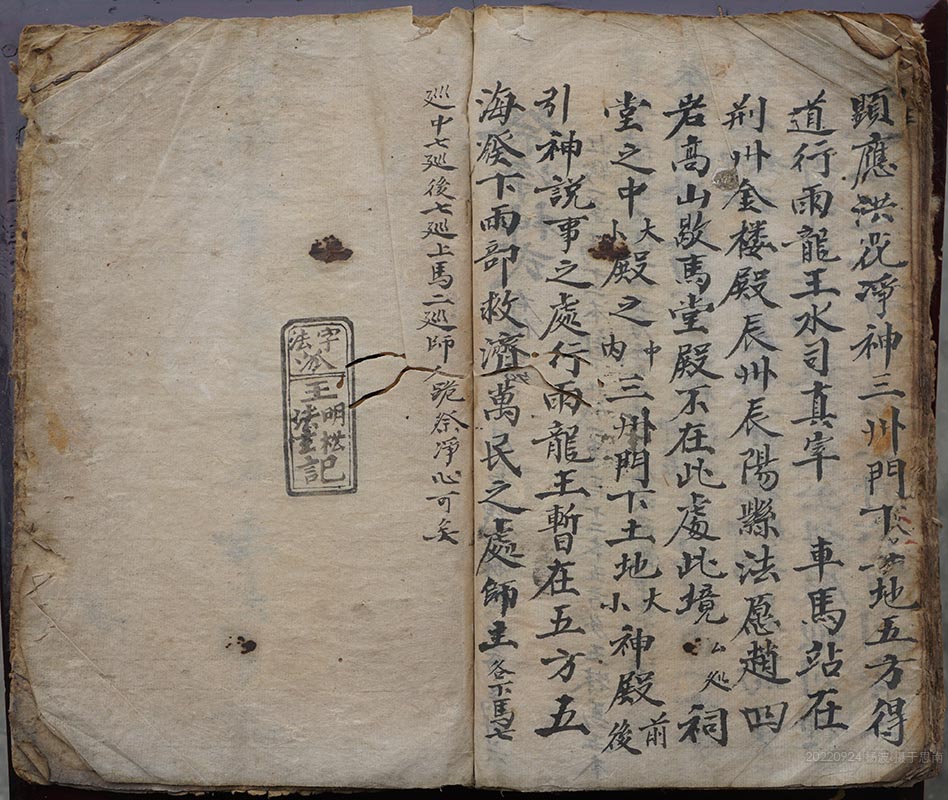 顯應洪花淨神三州門下土地五方得
道行雨龍王水司真宰　車馬站在
荆州金楼殿辰州辰陽縣法愿趙四
岩高山敢馬堂殿不在此處此境公廵祠
堂之中大小殿之中内三州門下土地大小神殿前後
引神説事之處行雨龍王暫在五方五
海發下雨部救濟萬民之處師主各下馬七
廵中七廵後七廵上馬二廵師人跪祭淨心可矣
字法
王明松法
記
20220924 摄于思南